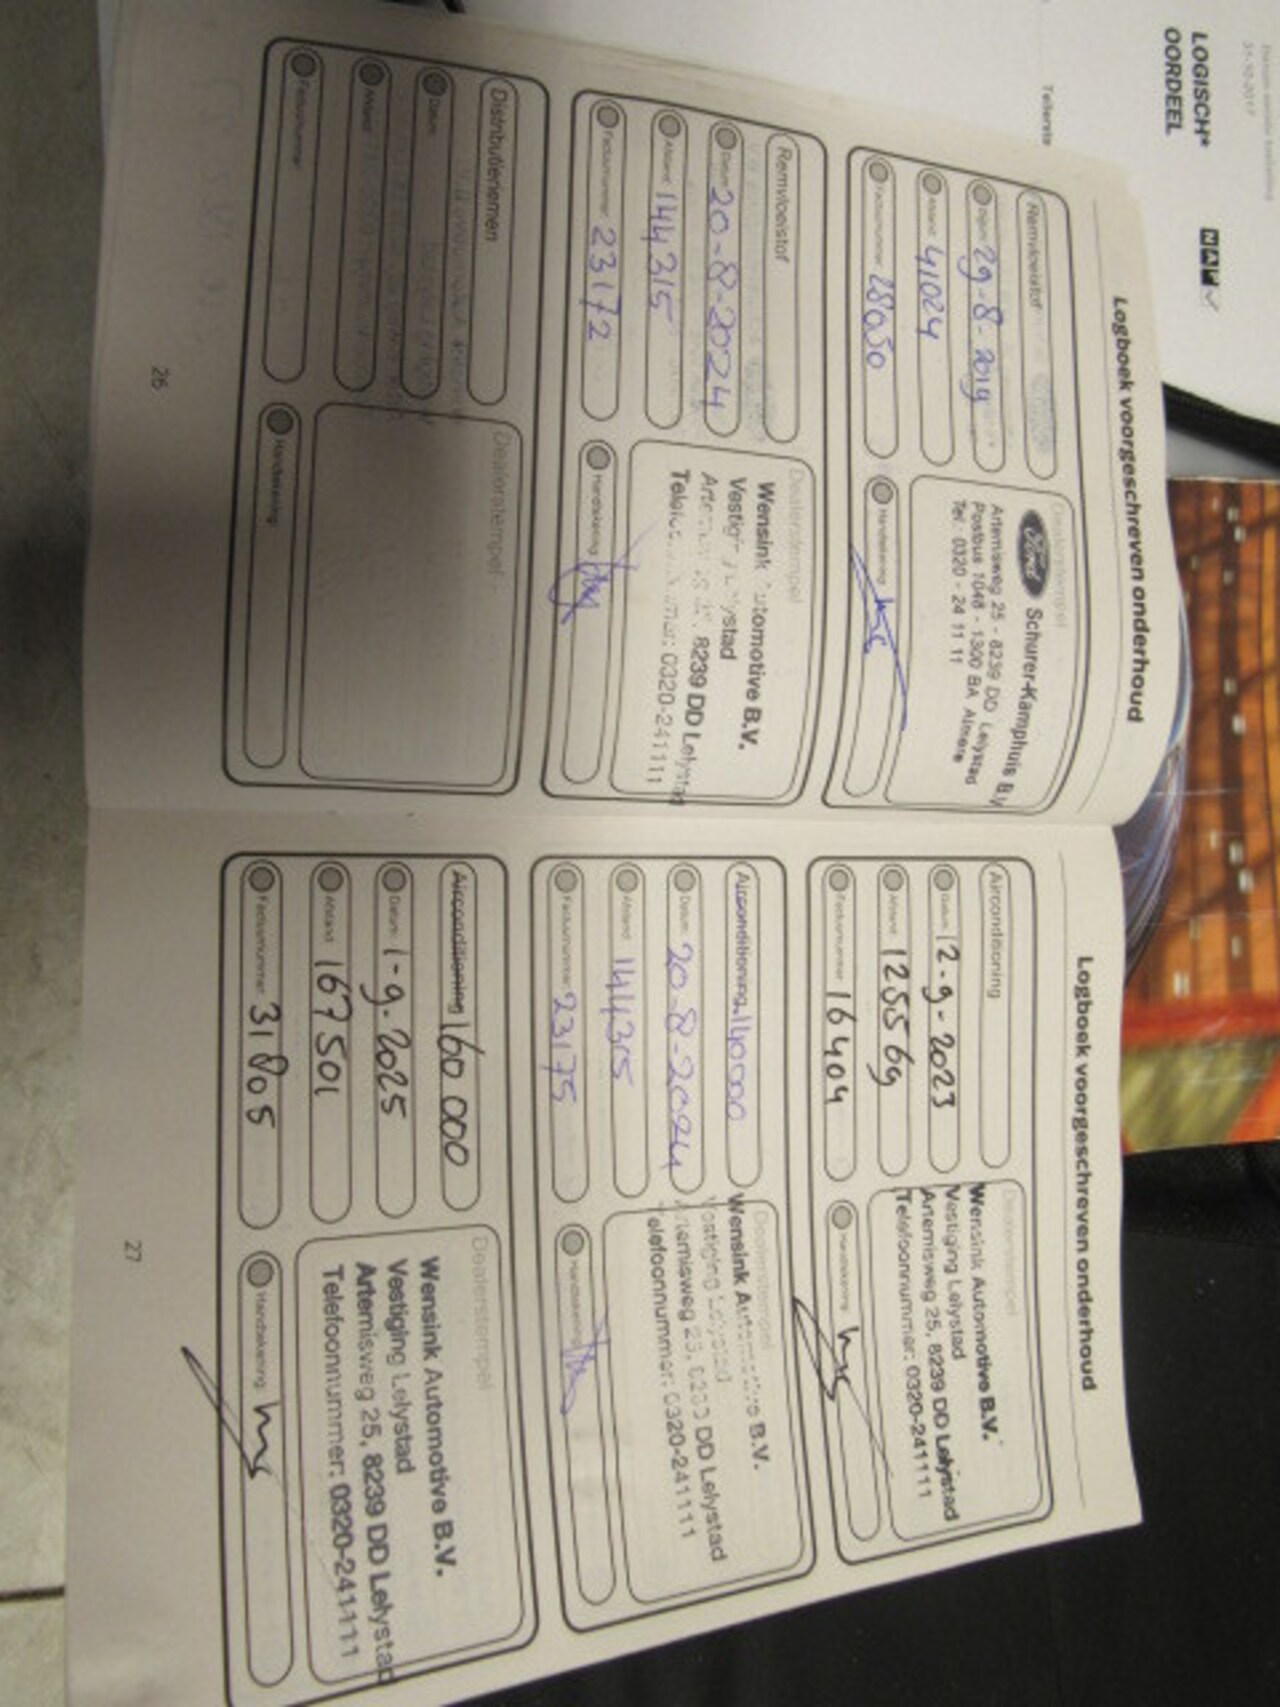 LOGISCH*
OORDEEL
31-10-2017
NAP
Tellersta
Logboek voorgeschreven onderhoud
Remvloeistof
Datum 29-8-2019
Afstand 41024
Factuurnummer 28050
Dealerstempel
Ford Schurer-Kamphuis B.V
Artemisweg 25 - 8239 DD Lelystad
Postbus 1048 - 1300 BA Almere
Tel : 0320 - 24 11 11
Handtekening
Remvloeistof
Datum 20-8-2024
Afstand 144315
Factuurnummer 23172
Dealerstempel
Wensink Automotive B.V.
Vestiging Lelystad
8239 DD Lelystad
0320-241111
Handtekening
Distributieriemen
Datum
Afstand
Factuurnummer
Dealerstempel
Handtekening
26
Logboek voorgeschreven onderhoud
Airconditioning
Datum 12-9-2023
Afstand 125569
Factuurnummer 16404
Dealerstempel
Wensink Automotive B.V.
Vestiging Lelystad
Artemisweg 25, 8239 DD Lelystad
Telefoonnummer: 0320-241111
Handtekening
Airconditioning 140000
Datum 20-8-2024
Afstand 144315
Factuurnummer 23175
Dealerstempel
Wensink Automotive B.V.
Vestiging Lelystad
Artemisweg 25, 8239 DD Lelystad
Telefoonnummer: 0320-241111
Handtekening
Airconditioning 160 000
Datum 1-9-2025
Afstand 167501
Factuurnummer 31805
Dealerstempel
Wensink Automotive B.V.
Vestiging Lelystad
Artemisweg 25, 8239 DD Lelystad
Telefoonnummer: 0320-241111
Handtekening
27